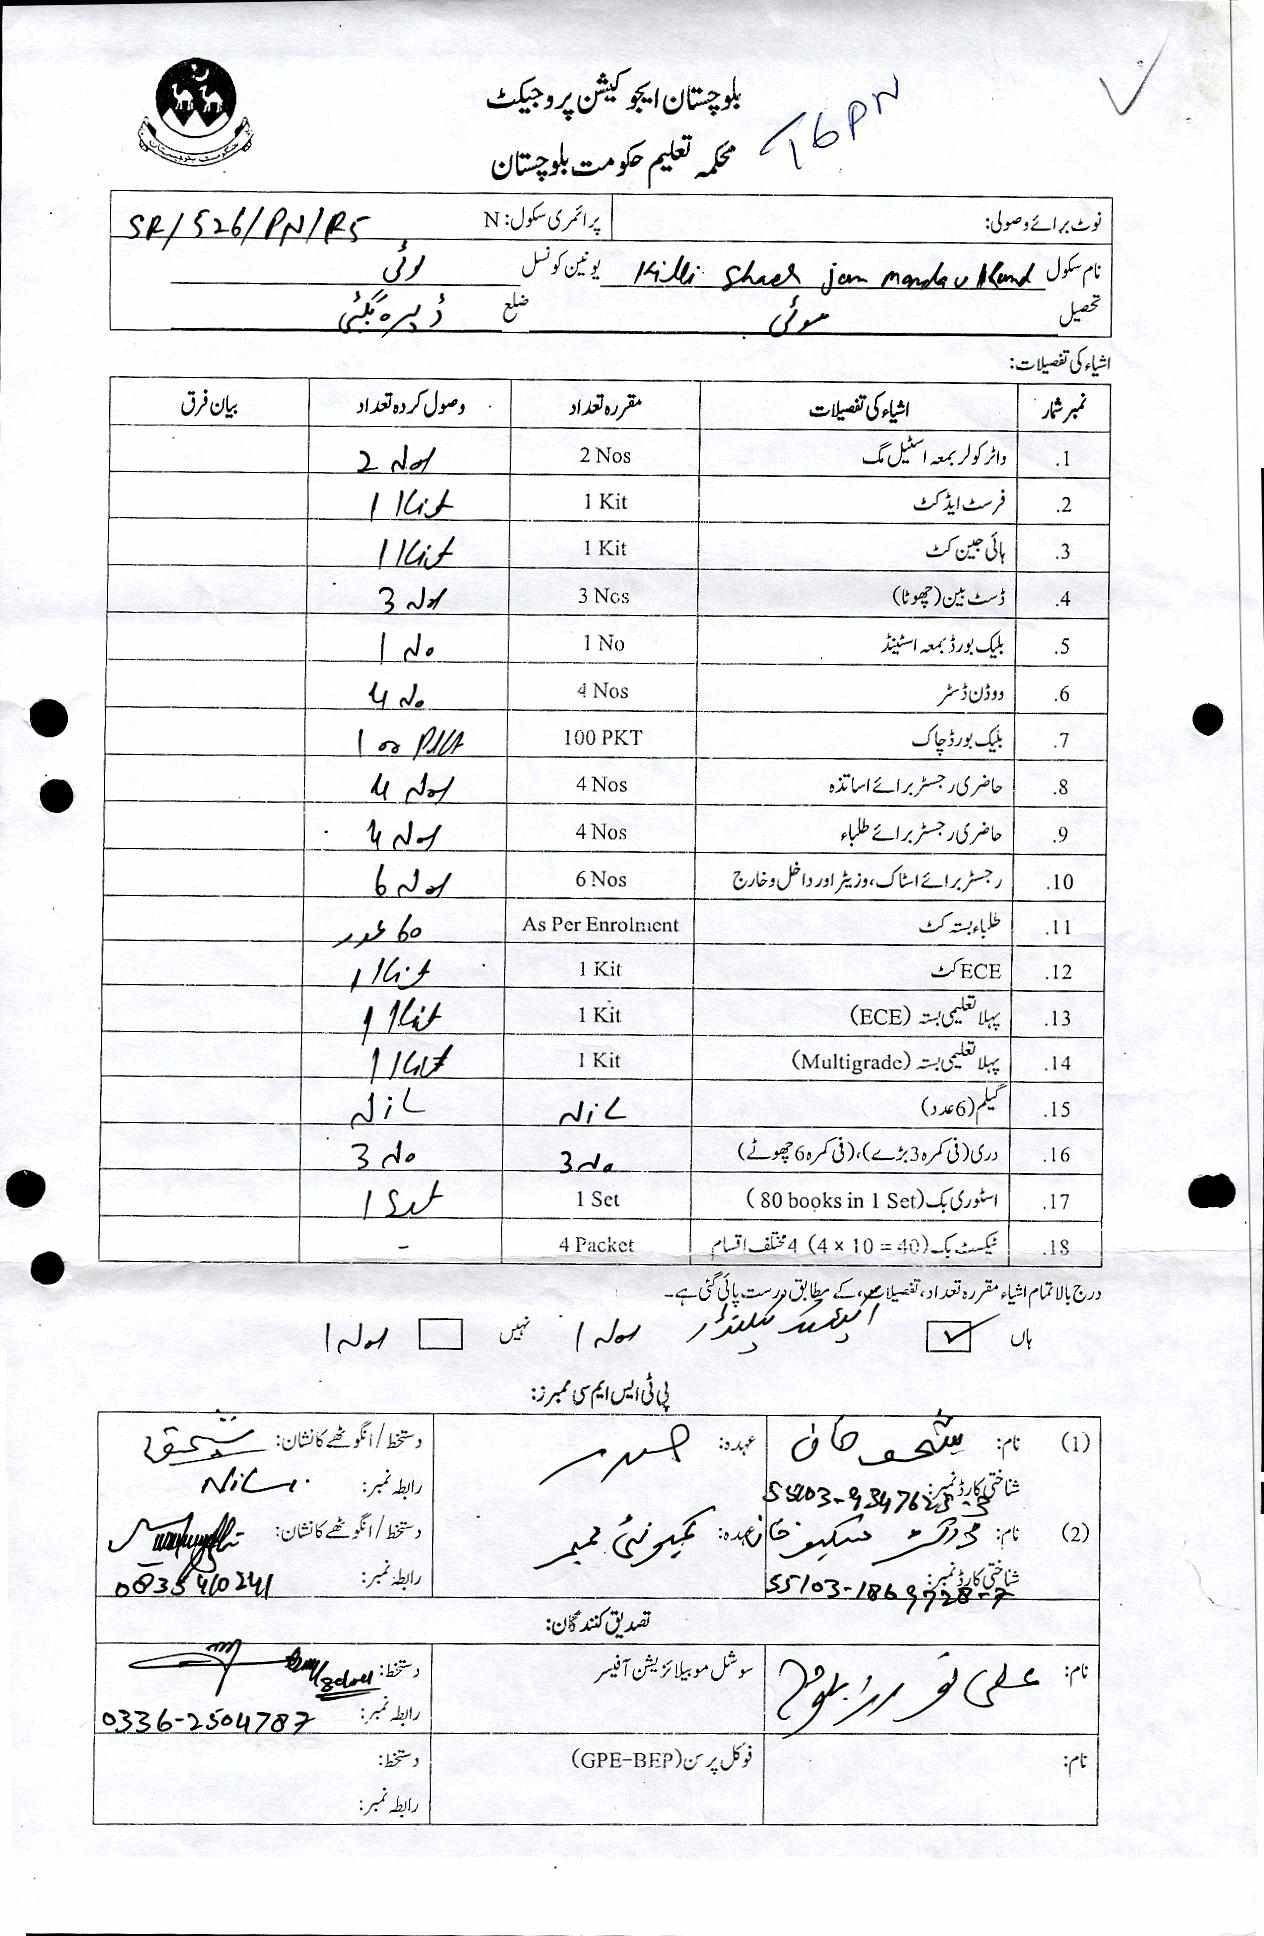 بلوچستان ایجوکیشن پروجیکٹ
محکمہ تعلیم حکومت بلوچستان
T6PN
نوٹ برائے وصولی: پرائمری سکول: N SR/526/PN/R5
نام سکول Killi Shaeh jan mandav Kand یونین کونسل لوئی
تحصیل سوئی ضلع ڈیرہ بگٹی
اشیاء کی تفصیلات:
نمبر شمار اشیاء کی تفصیلات مقررہ تعداد وصول کردہ تعداد بیان فرق
1. واٹر کولر بمعہ اسٹیل مگ 2 Nos 2 Nos
2. فرسٹ ایڈ کٹ 1 Kit 1 Kit
3. ہائی جین کٹ 1 Kit 1 Kit
4. ڈسٹ بین (چھوٹا) 3 Nos 3 Nos
5. بلیک بورڈ بمعہ اسٹینڈ 1 No 1 No
6. ووڈن ڈسٹر 4 Nos 4 No
7. بلیک بورڈ چاک 100 PKT 100 PKT
8. حاضری رجسٹر برائے اساتذہ 4 Nos 4 Nos
9. حاضری رجسٹر برائے طلباء 4 Nos 4 Nos
10. رجسٹر برائے اسٹاک، وزیٹر اور داخل و خارج 6 Nos 6 Nos
11. طلباء بستہ کٹ As Per Enrolment 60 عدد
12. ECE کٹ 1 Kit 1 Kit
13. پہلا تعلیمی بستہ (ECE) 1 Kit 1 Kit
14. پہلا تعلیمی بستہ (Multigrade) 1 Kit 1 Kit
15. گیلم (6 عدد) NiL NiL
16. دری (فی کمرہ 3 بڑے)، (فی کمرہ 6 چھوٹے) 3 No 3 No
17. اسٹوری بک (80 books in 1 Set) 1 Set 1 Set
18. ٹیکسٹ بک (4 x 10 = 40) 4 مختلف اقسام 4 Packet -
درج بالا تمام اشیاء مقررہ تعداد، تفصیلات، کے مطابق درست پائی گئی ہے۔
ہاں ✓ 1 Nos نہیں 1 Nos
پی ٹی ایس ایم سی ممبرز:
(1) نام: خان عہدہ: صدر دستخط/انگوٹھے کا نشان:
شناختی کارڈ نمبر: رابطہ نمبر: NiL
(2) نام: خان عہدہ: کمیونٹی ممبر دستخط/انگوٹھے کا نشان:
شناختی کارڈ نمبر: 55103-1869728-7 رابطہ نمبر: 0835410241
تصدیق کنندگان:
نام: علی نور بلوچ سوشل موبیلائزیشن آفیسر دستخط:
رابطہ نمبر: 0336-2504787
نام: فوکل پرسن (GPE-BEP) دستخط:
رابطہ نمبر: